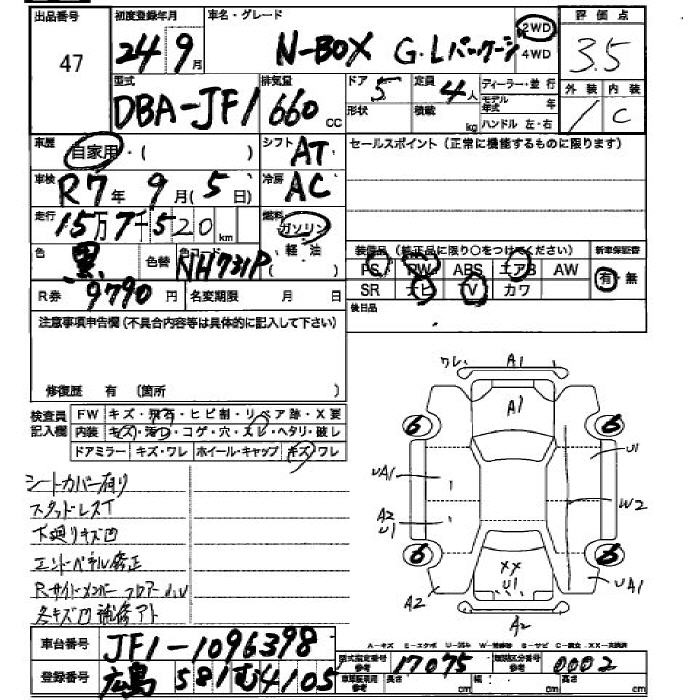 出品番号
47
初度登録年月
24 9月
車名・グレード
N-BOX G.Lパッケージ
2WD
4WD
評価点
3.5
外装 内装
1 C
型式
DBA-JF1
排気量
660 cc
ドア
5
形状
定員
4人
積載
kg
ディーラー・並行
モデル年式 年
ハンドル 左・右
車歴
自家用・( )
シフト
AT
セールスポイント（正常に機能するものに限ります）
車検
R7年9月(5日)
冷房
AC
走行
15万7-520km
燃料
ガソリン
軽油
色
黒
色替
色コード
NH731P
装備品（純正品に限り○をつけてください）
PS PW ABS エアB AW
SR ナビ TV カワ
新車保証書
有・無
R券 9790円
名変期限 月 日
後日品
注意事項申告欄（不具合内容等は具体的に記入して下さい）
修復歴 有 （箇所 ）
検査員記入欄
FW キズ・飛石・ヒビ割・リペア跡・X要
内装 キズ・汚レ・コゲ・穴・スレ・ヘタリ・破レ
ドアミラー キズ・ワレ ホイール・キャップ キズ・ワレ
シートカバー有り
スタッドレスT
下廻りキズ凹
エンドパネル修正
Rサイドメンバー フロアー
ワレ A1
A1
6 6
UA1 U1
A2
U1
W2
6 6
XX
U1
A2 UA1
A2
車台番号
JF1-1096398
登録番号
広島 581 む4105
型式指定番号
参考
17075
類別区分番号
参考
0002
長さ cm 幅 cm 高さ cm